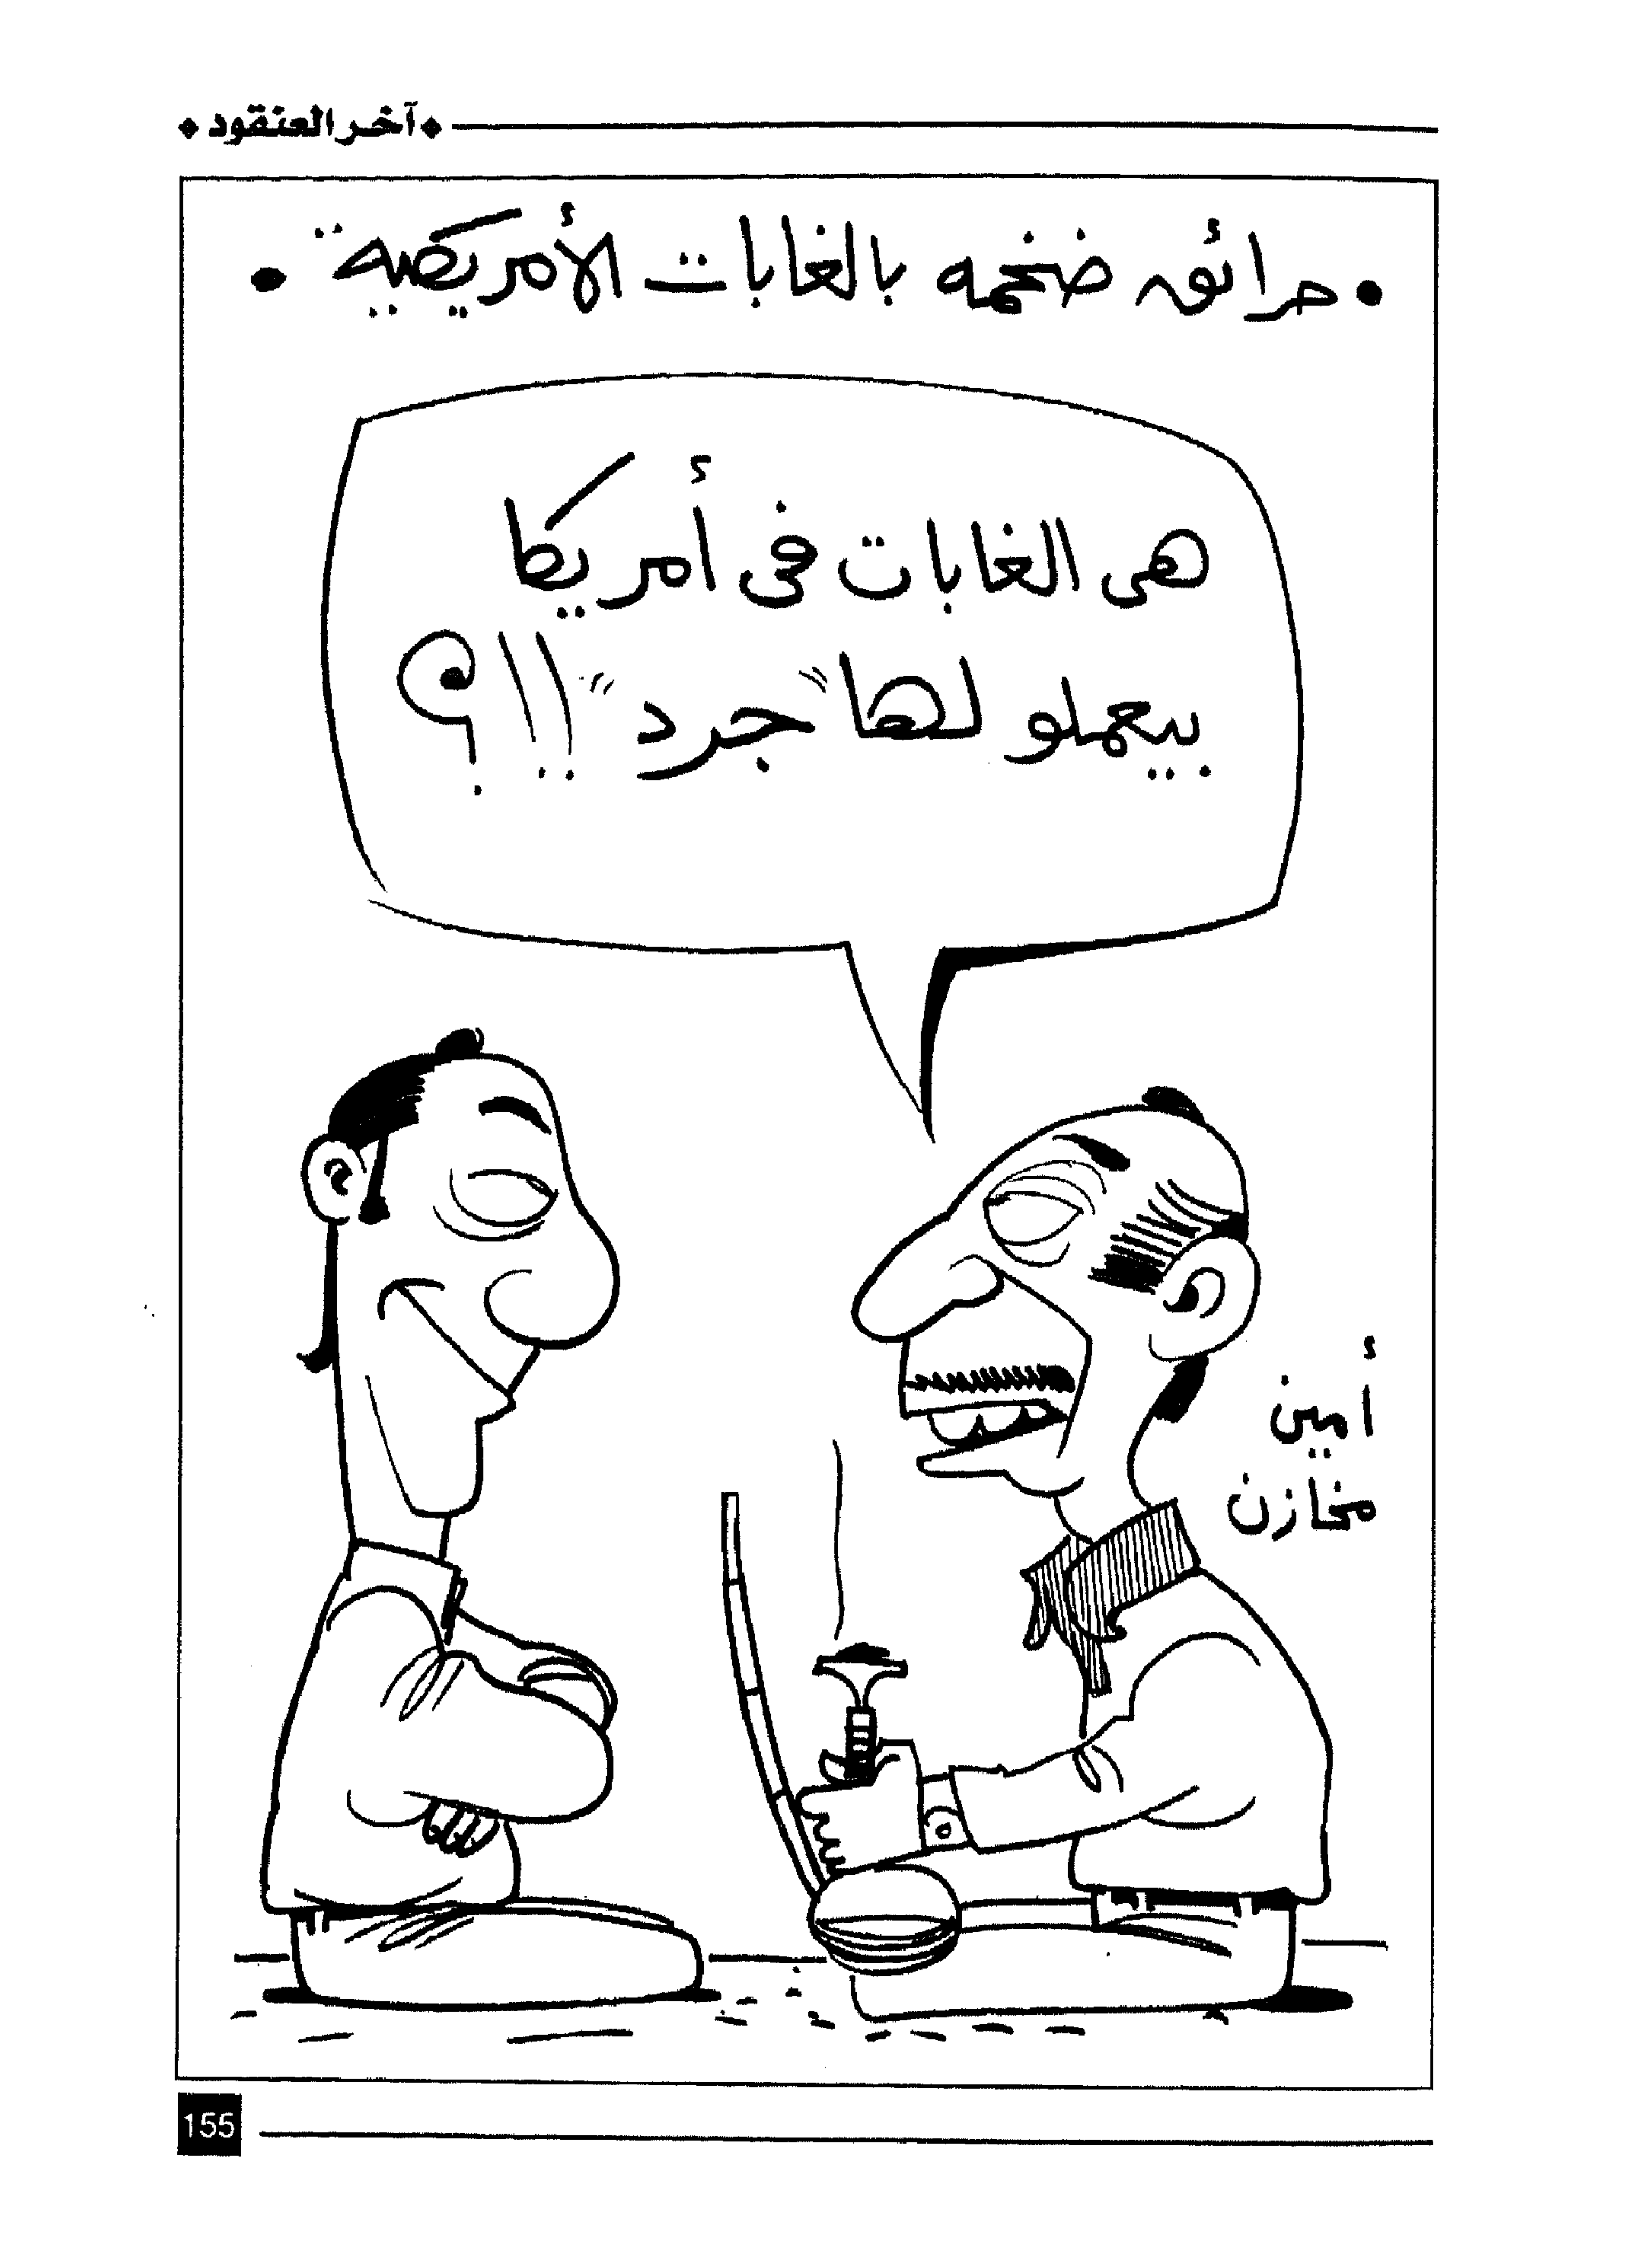 آخر العنقود
• حرائق ضخمه بالغابات الأمريكية .. •
هى الغابات فى أمريكا
بيعملو لها "جرد" !!؟
أمين
مخازن
155